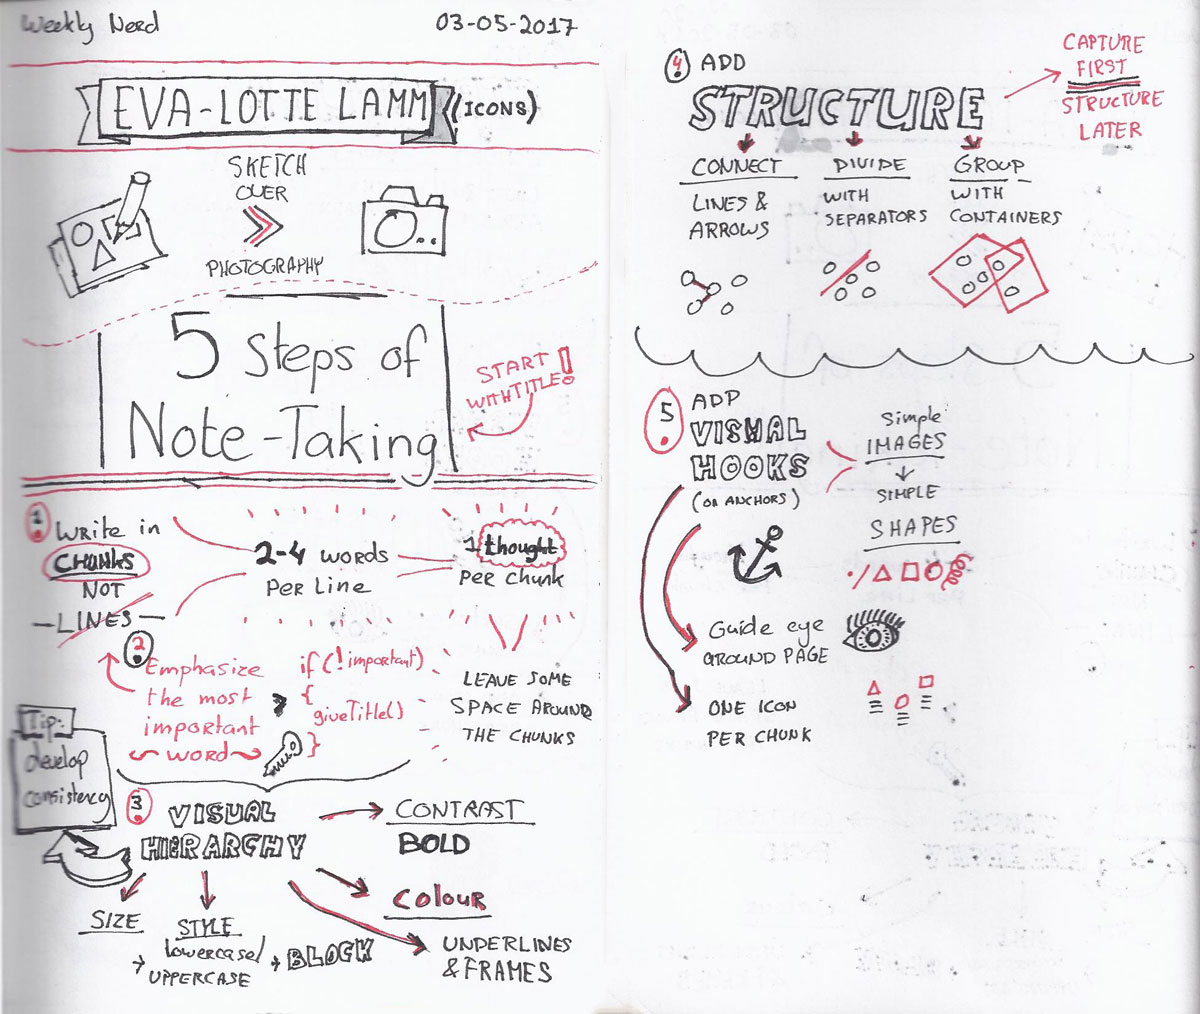 Weekly Nerd
03-05-2017
EVA-LOTTE LAMM
(ICONS)
SKETCH
OVER
PHOTOGRAPHY
5 Steps of
Note-Taking
START
WITH TITLE!
1
Write in
CHUNKS
NOT
LINES
2-4 WORDS
Per Line
1 thought
per chunk
LEAVE SOME
SPACE AROUND
THE CHUNKS
2
Emphasize
the most
important
WORD
if (!important)
{
giveTitle()
}
Tip:
develop
consistency
3
VISUAL
HIERARCHY
CONTRAST
BOLD
COLOUR
UNDERLINES
& FRAMES
SIZE
STYLE
lowercase/
UPPERCASE
BLOCK
4 ADD
STRUCTURE
CAPTURE
FIRST
STRUCTURE
LATER
CONNECT
LINES &
ARROWS
DIVIDE
WITH
SEPARATORS
GROUP
WITH
CONTAINERS
5
ADD
VISUAL
HOOKS
(OR ANCHORS)
Simple
IMAGES
SIMPLE
SHAPES
Guide eye
AROUND PAGE
ONE ICON
PER CHUNK